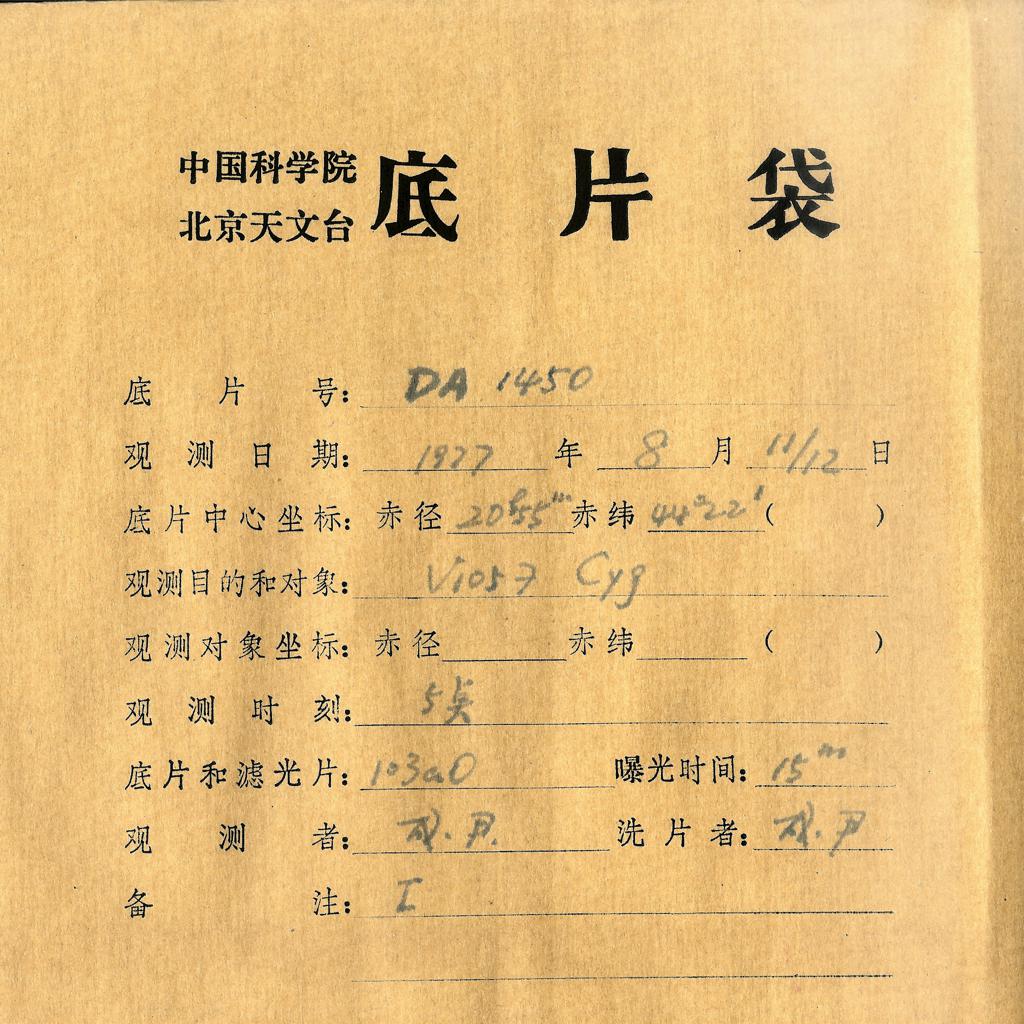 中国科学院
北京天文台
底片袋
底片号: DA 1450
观测日期: 1977 年 8 月 11/12 日
底片中心坐标: 赤径 20ʰ55ᵐ 赤纬 44°22′ ( )
观测目的和对象: V1057 Cyg
观测对象坐标: 赤径 赤纬 ( )
观测时刻: 5点
底片和滤光片: 103aO 曝光时间: 15ᵐ
观测者: 洗片者:
备注: I